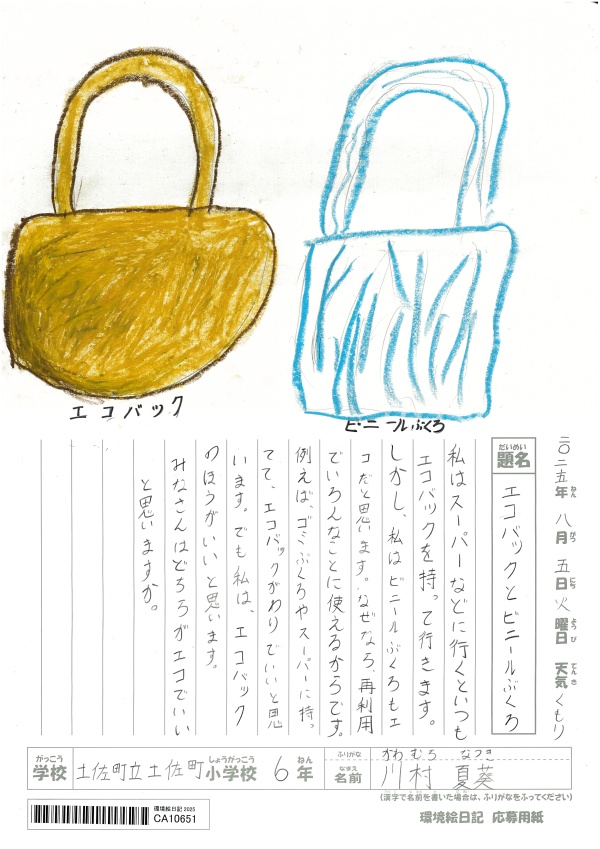 エコバック
ビニールぶくろ
二〇二五年 八月 五日 火曜日 天気 くもり
ねん がつ にち ようび てんき
だいめい
題名 エコバックとビニールぶくろ
私はスーパーなどに行くといつも
エコバックを持って行きます。
しかし、私はビニールぶくろもエ
コだと思います。なぜなら、再利用
でいろんなことに使えるからです。
例えば、ゴミぶくろやスーパーに持っ
てて、エコバックがわりでいいと思
います。でも私は、エコバック
のほうがいいと思います。
みなさんはどちらがエコでいい
と思いますか。
がっこう しょうがっこう ねん
学校 土佐町立土佐町小学校 6年
ふりがな かわむら なつき
なまえ
名前 川村 夏葵
(漢字で名前を書いた場合は、ふりがなをふってください)
環境絵日記 2025
CA10651
環境絵日記 応募用紙